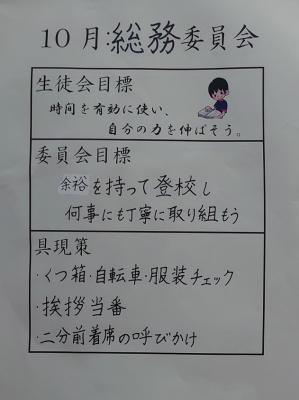 10月:総務委員会
生徒会目標
時間を有効に使い、
自分の力を伸ばそう。
委員会目標
余裕を持って登校し
何事にも丁寧に取り組もう
具現策
・くつ箱・自転車・服装チェック
・挨拶当番
・二分前着席の呼びかけ